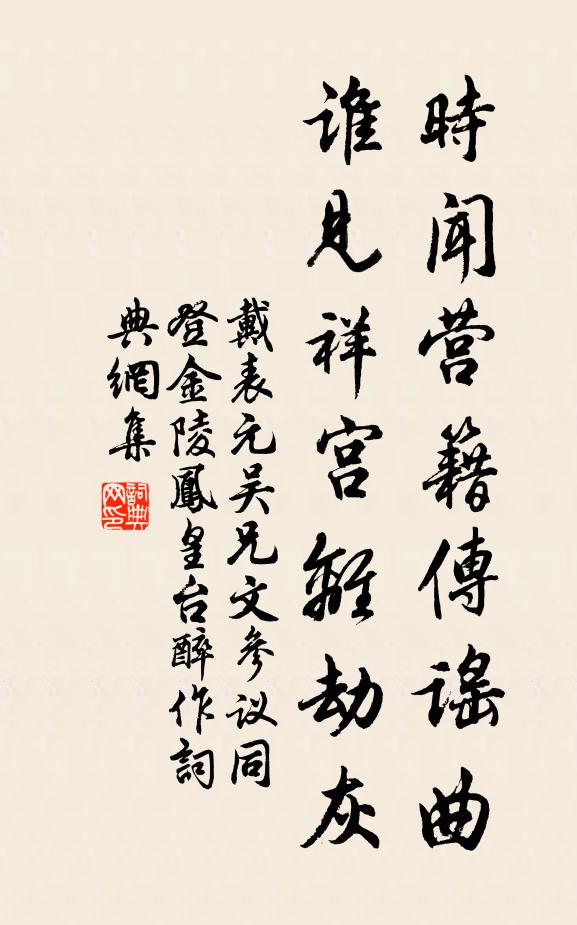 時聞营籍傳謡曲
谁見祥宫離劫灰
戴表元吴兄文參议同
登金陵鳳皇台醉作詞
典網集
詞典网印